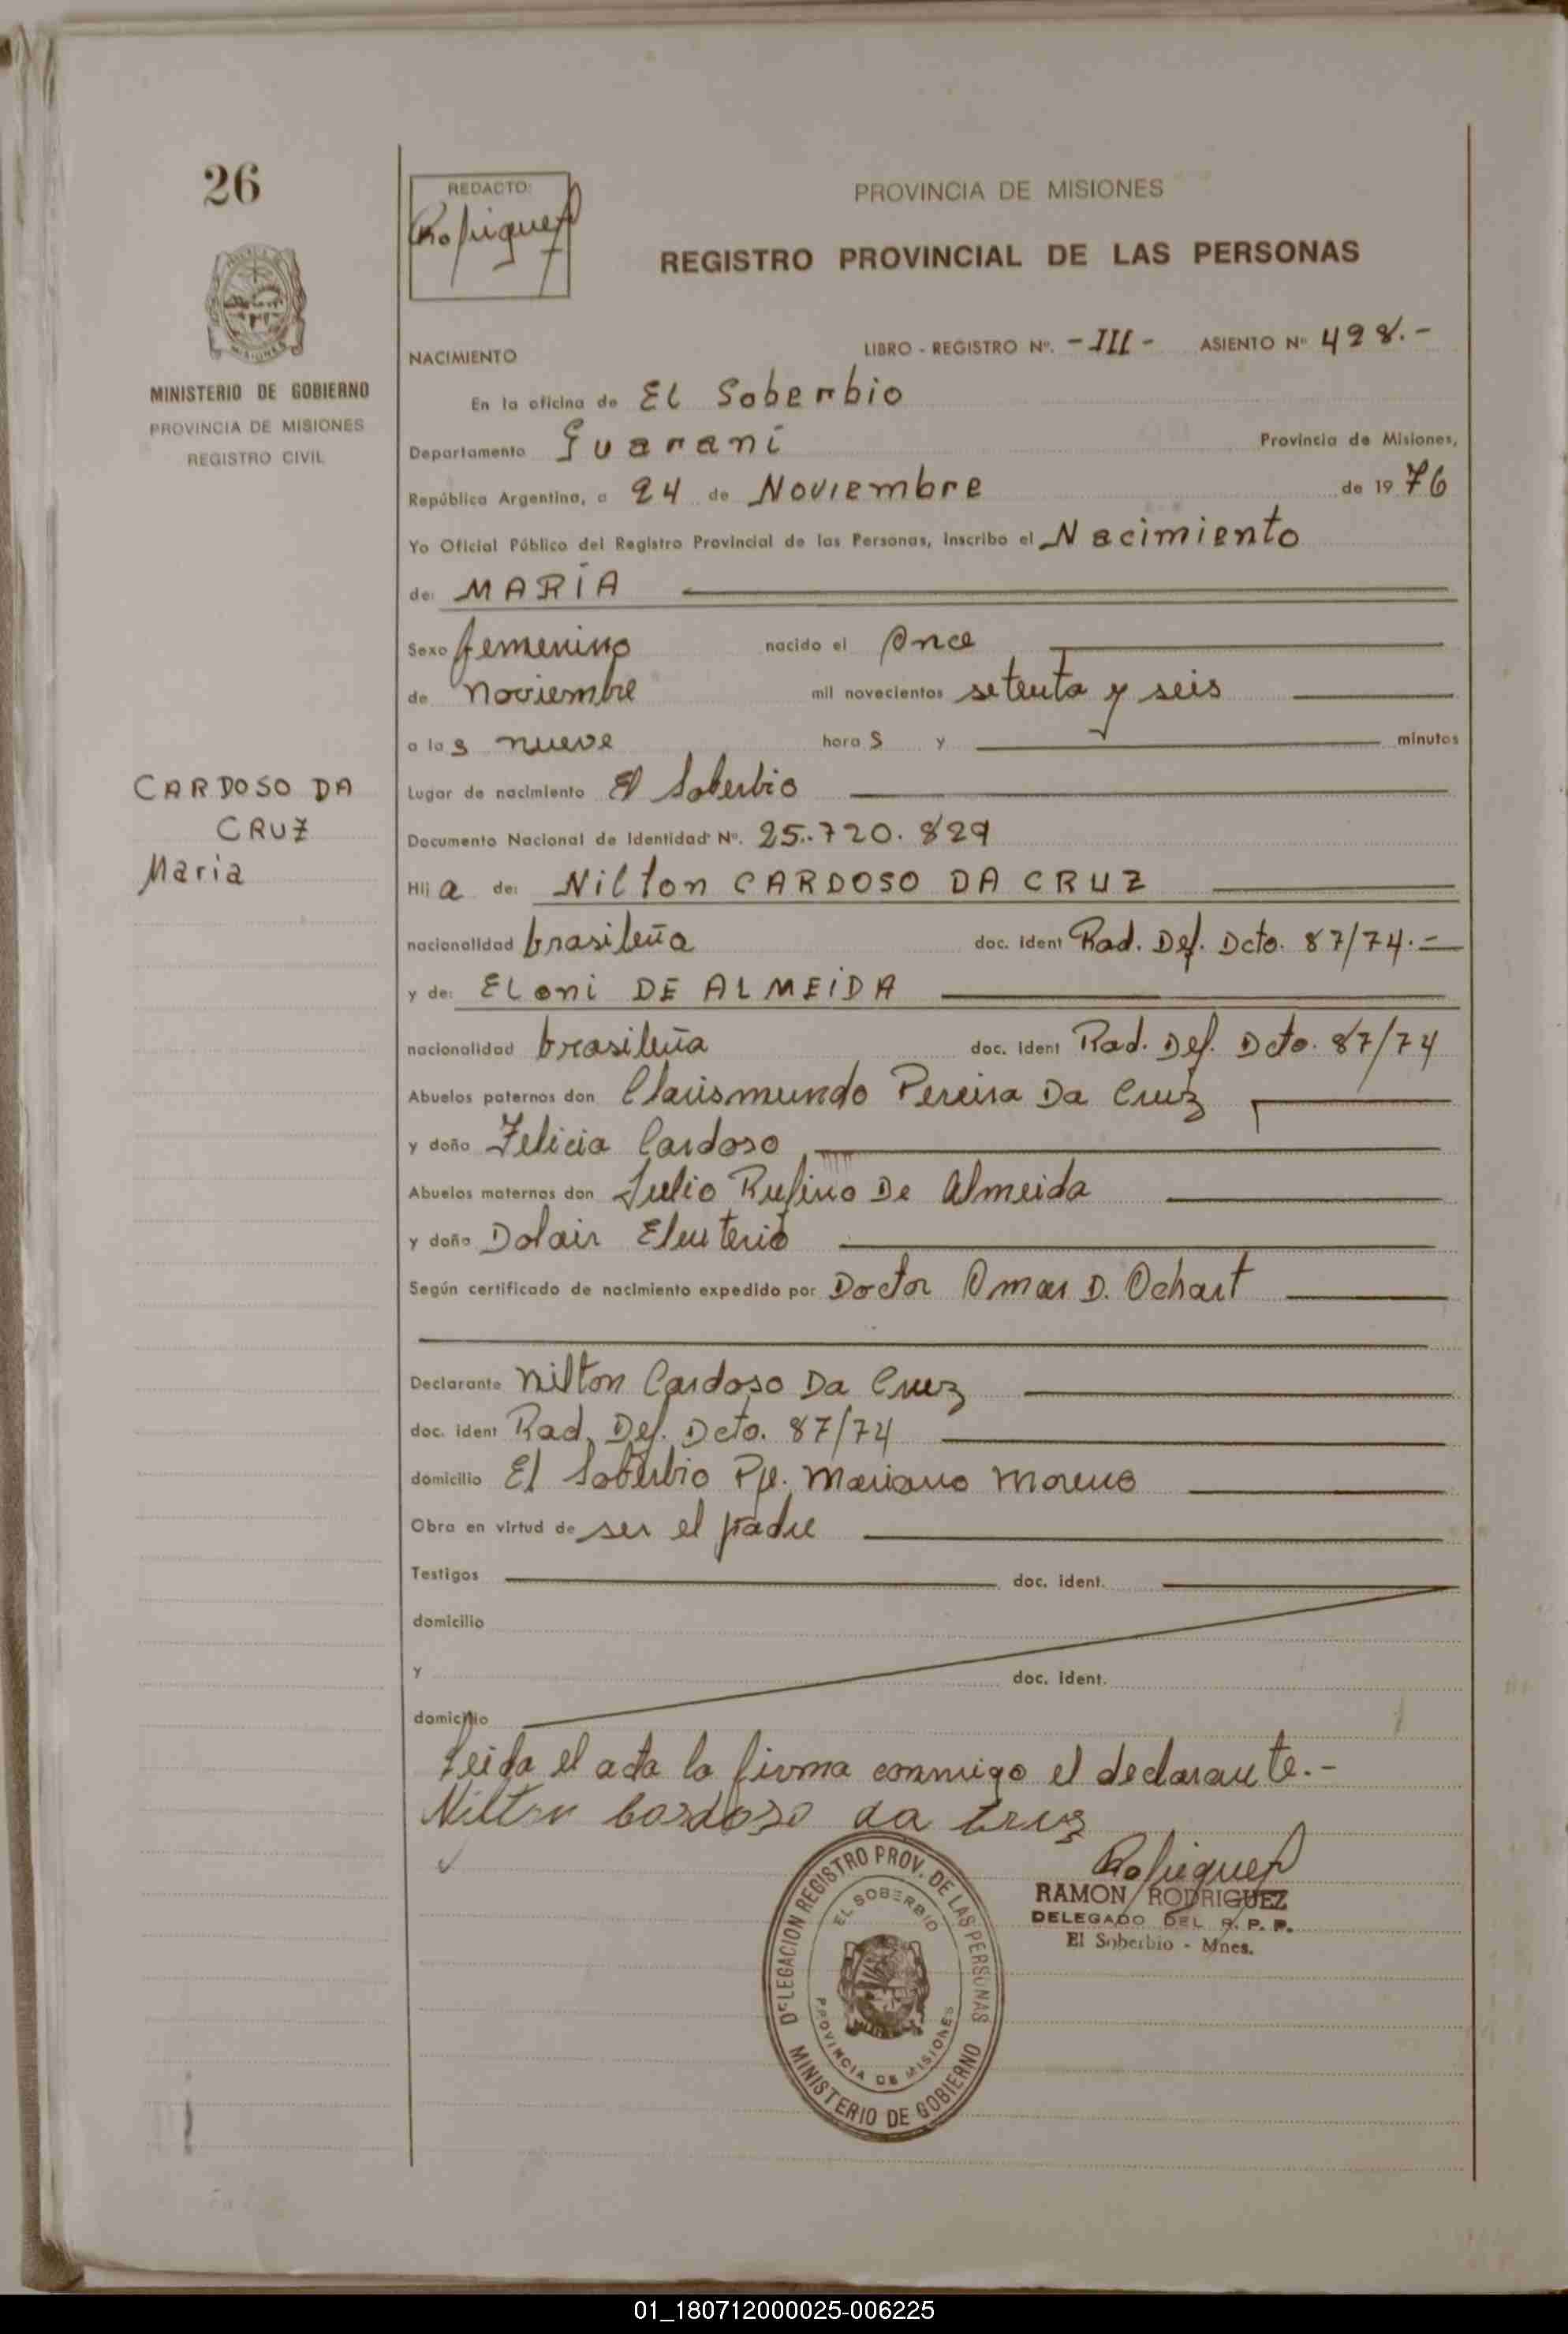 26
REDACTO:
Rodriguez
PROVINCIA DE MISIONES
REGISTRO PROVINCIAL DE LAS PERSONAS
MISIONES
MINISTERIO DE GOBIERNO
PROVINCIA DE MISIONES
REGISTRO CIVIL
NACIMIENTO
LIBRO - REGISTRO Nº. - III - ASIENTO Nº 498.-
En la oficina de El Soberbio
Departamento Guaraní Provincia de Misiones,
República Argentina, a 24 de Noviembre de 1976
Yo Oficial Público del Registro Provincial de las Personas, inscribo el Nacimiento
de: MARÍA
Sexo femenino nacido el Once
de noviembre mil novecientos setenta y seis
a las nueve horas y minutos
CARDOSO DA
CRUZ
Maria
Lugar de nacimiento El Soberbio
Documento Nacional de Identidad Nº. 25.720.829
Hija de: Nilton CARDOSO DA CRUZ
nacionalidad brasileña doc. ident Rad. Def. Dcto. 87/74.=
y de: Eloni DE ALMEIDA
nacionalidad brasileña doc. ident Rad. Def. Dcto. 87/74
Abuelos paternos don Clarismundo Pereira Da Cruz
y doña Felicia Cardoso
Abuelos maternos don Julio Rufino De Almeida
y doña Dolair Eleuterio
Según certificado de nacimiento expedido por Doctor Omar D. Ochart
Declarante Nilton Cardoso Da Cruz
doc. ident Rad. Def. Dcto. 87/74
domicilio El Soberbio Pje. Mariano Moreno
Obra en virtud de ser el padre
Testigos doc. ident.
domicilio
y doc. ident.
domicilio
Leida el acta la firma conmigo el declarante.-
Nilton Cardoso da Cruz
Rodriguez
RAMON RODRIGUEZ
DELEGADO DEL R. P. P.
El Soberbio - Mnes.
DELEGACION REGISTRO PROV. DE LAS PERSONAS
EL SOBERBIO
PROVINCIA DE MISIONES
MINISTERIO DE GOBIERNO
01_180712000025-006225